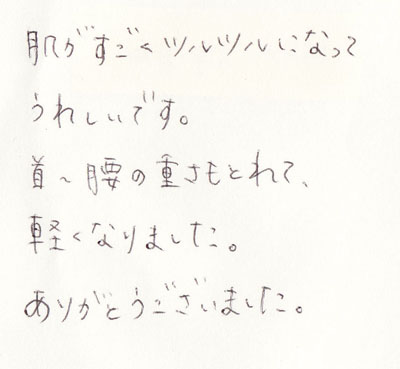 肌がすごくツルツルになって
うれしいです。
首~腰の重さもとれて、
軽くなりました。
ありがとうございました。